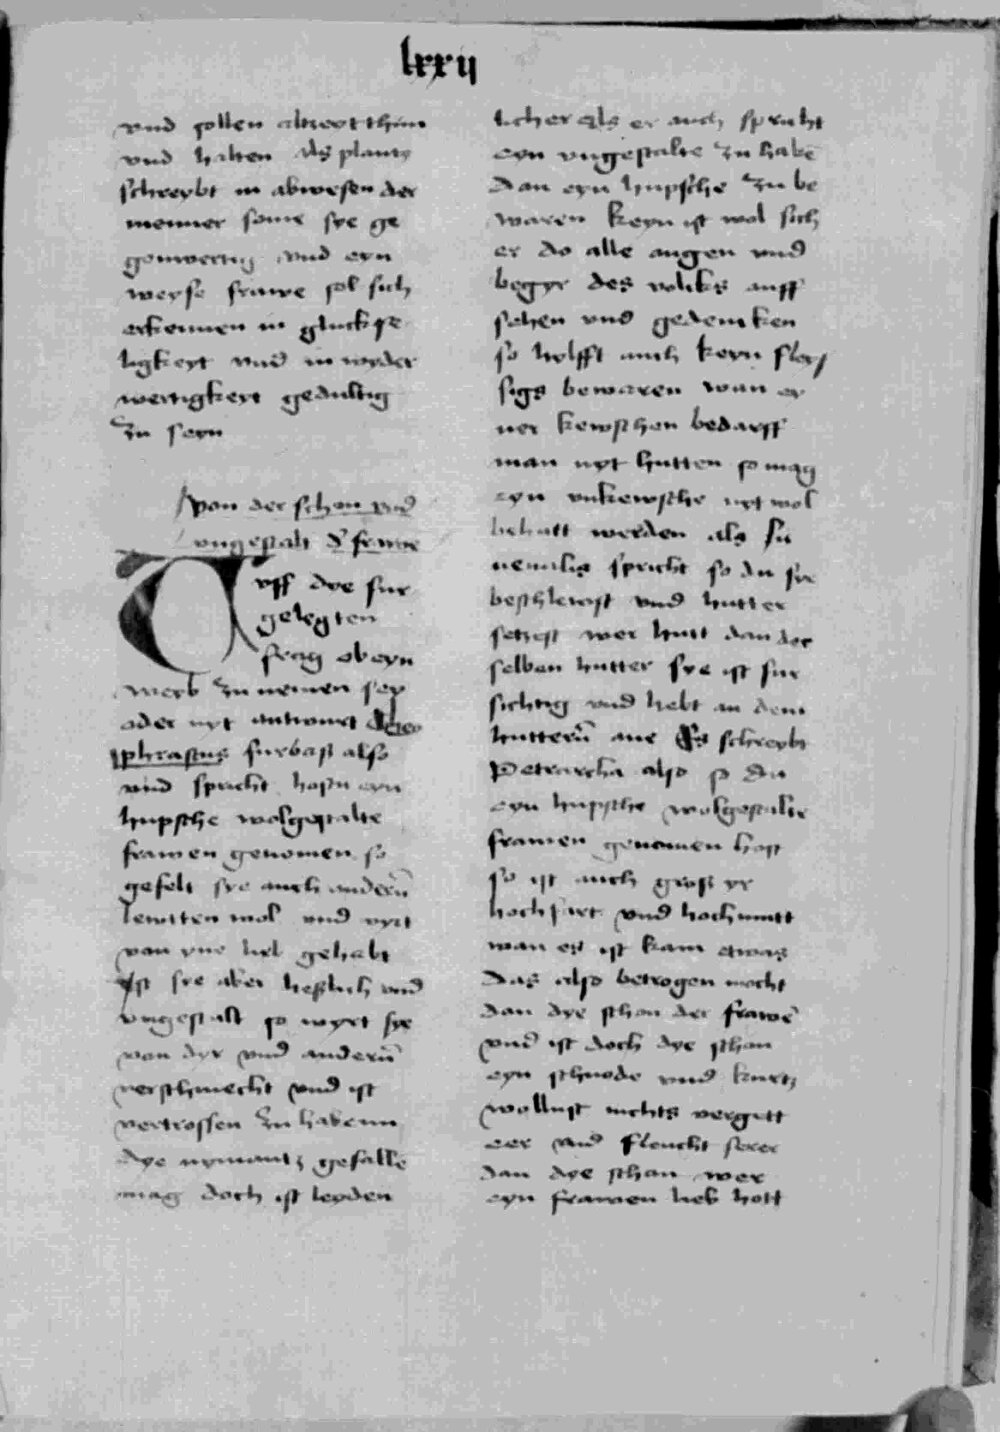 lxxii
vnd sollen alweͦt thun
vnd halten als plautꝫ
schreybt in abwesen der
menner some sye ge
genwertig vnd eyn
weyse frawe sol sich
erkennen in gluckse
ligkeyt vnd in wyder
wertigkeyt gedultig
zu seyn
Von der schon vnd
vngestalt d' frawe
Vff dye fur
gelegten
frag ob eyn
weyb zu nemen sey
oder nyt antwurt theo
phrastus furbaß also
vnd spricht hastu eyn
hupsche wolgestalte
frawen genomen so
gefelt sye auch andern̄
lewtten wol vnd wyrt
von yne lieb gehabt
Ist sye aber heßlich vnd
vngestalt so wyrt sye
von dyr vnd andern̄
verschmecht vnd ist
vertrossen zu habenn
dye nymantz gefallē
mag doch ist leyden
licher als er auch spricht
eyn vngestalte zu habē
dan eyn hupsche zu be
waren keyn ist wol sich
er do alle augen vnd
begyr des volcks auff
sehen vnd gedencken
so hylfft auch keyn fleys
sigs bewaren wan ey
ner kewschen bedarff
man nyt hutten so mag
eyn vnkewsche nyt wol
behutt werden als Ju
uenalis spricht so du sye
beschlewst vnd hutter
setzest wer hutt dan der
selben hutter sye ist fur
sichtig vnd hebt an dem
huttern̄ ane Es schreybt
Petrarcha also so du
eyn hupsche wolgestalte
frawen genomen hast
so ist auch groß yr
hochfart vnd hochmutt
wan es ist kam etwas
das also betrogen mecht
dan dye schon der frawē
vnd ist doch dye schon
eyn schnode vnd kurtz
wollust nichts vergett
eer vnd fleucht serer
dan dye schon wer
eyn frawen lieb hott